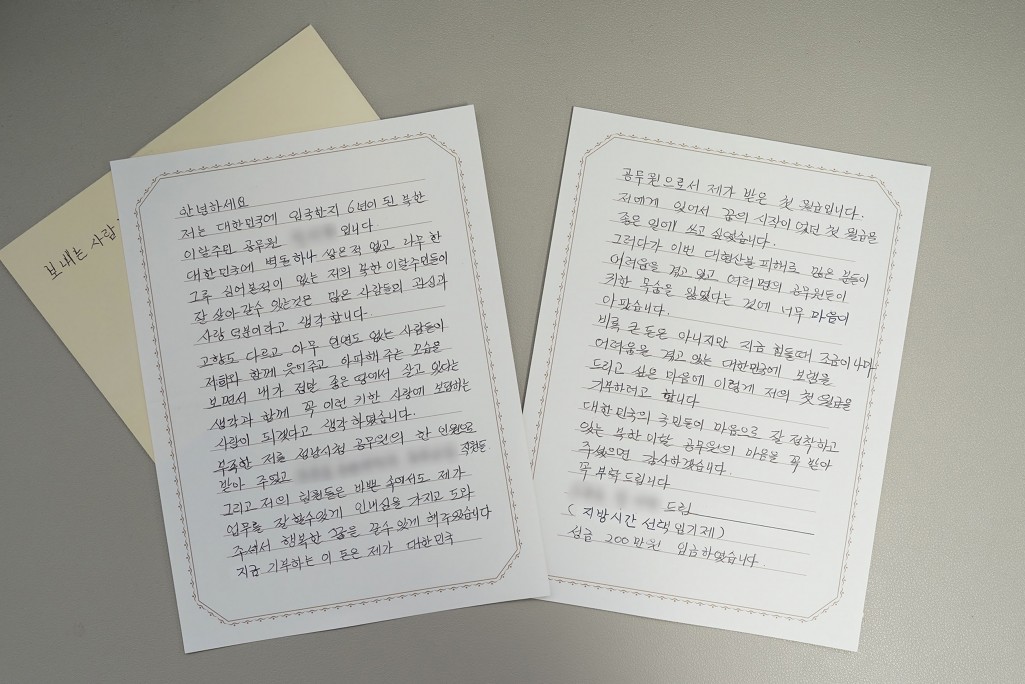 보내는 사람
안녕하세요
저는 대한민국에 입국한지 6년이 된 북한
이탈주민 공무원 입니다
대한민국에 벽돌하나 쌓은적 없고 나무 한
그루 심어본적이 없는 저의 북한 이탈주민들이
잘 살아 갈수 있는것은 많은 사람들의 관심과
사랑 덕분이라고 생각 합니다.
고향도 다르고 아무 연연도 없는 사람들이
저희와 함께 웃어주고 아파해 주는 모습을
보면서 내가 정말 좋은 땅에서 살고 있다는
생각과 함께 꼭 이런 귀한 사랑에 보답하는
사람이 되겠다고 생각 하였습니다.
부족한 저를 성남시청 공무원의 한 인원으로
받아 주었고 직원들
그리고 저의 팀원들은 바쁜 속에서도 제가
업무를 잘 할수있게 인내심을 가지고 도와
주셔서 행복한 꿈을 꿀수 있게 해주었습니다
지금 기부하는 이 돈은 제가 대한민국
공무원으로서 제가 받은 첫 월급입니다.
저에게 있어서 꿈의 시작이 었던 첫 월급을
좋은 일에 쓰고 싶었습니다.
그러다가 이번 대형산불 피해로 많은 분들이
어려움을 겪고 있고 여러명의 공무원들이
귀한 목숨을 잃었다는 것에 너무 마음이
아팠습니다.
비록 큰 돈은 아니지만 지금 힘들때 조금이나마
어려움을 겪고 있는 대한민국에 보탬을
드리고 싶은 마음에 이렇게 저의 첫 월급을
기부하려고 합니다
대한민국의 국민들이 마음으로 잘 정착하고
있는 북한이탈 공무원의 마음을 꼭 받아
주셨으면 감사하겠습니다.
꼭 부탁드립니다
드림
( 지방시간 선택 임기제 )
성금 200만원 입금하였습니다.